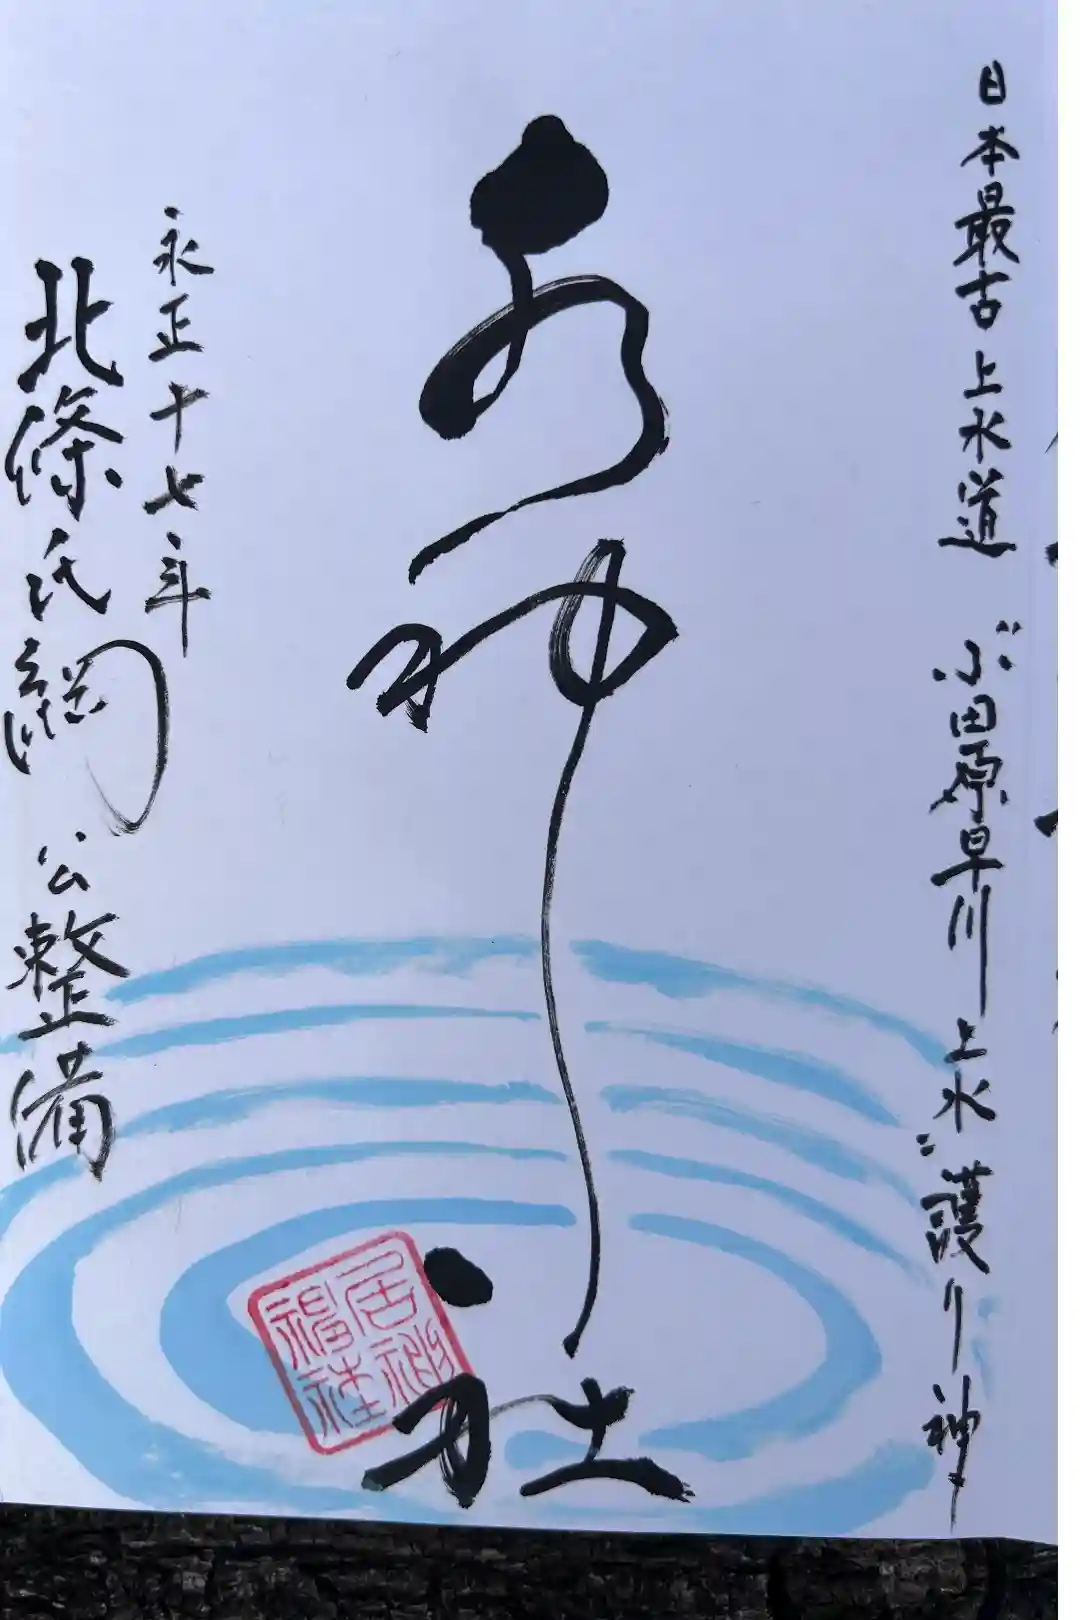 日本最古上水道 〝小田原早川上水〟護り神
水神社
居神
神社
永正十七年
北條氏綱公整備